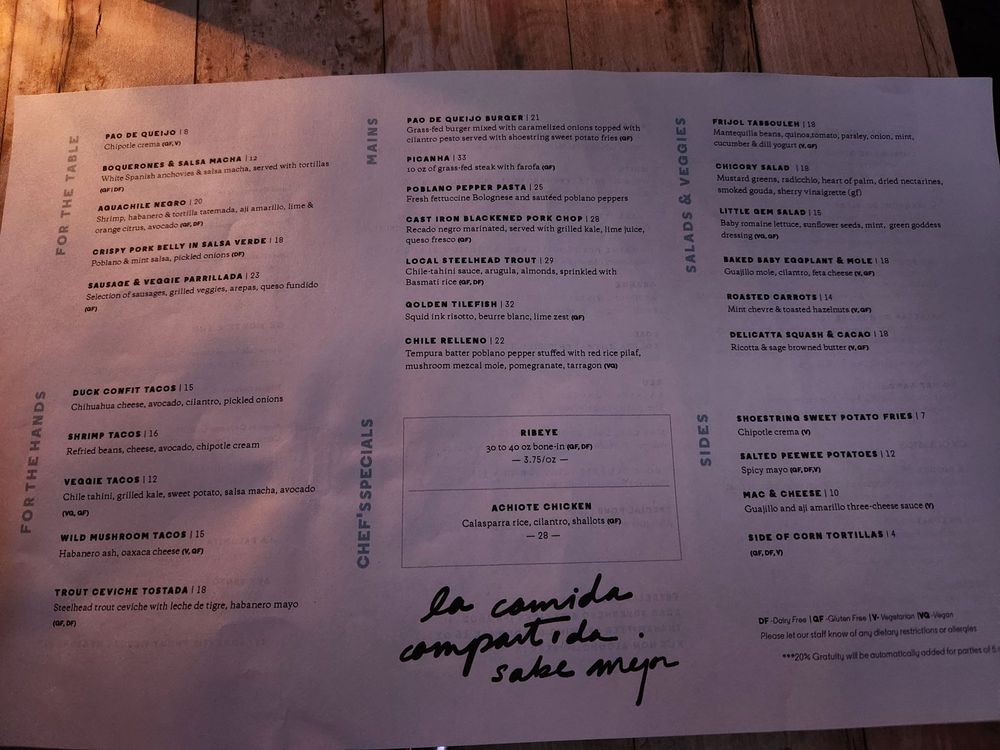 FOR THE TABLE
PAO DE QUEIJO | 8
Chipotle crema (GF,V)
BOQUERONES & SALSA MACHA | 12
White Spanish anchovies & salsa macha, served with tortillas
(GF|DF)
AGUACHILE NEGRO | 20
Shrimp, habanero & tortilla tatemada, aji amarillo, lime &
orange citrus, avocado (GF, DF)
CRISPY PORK BELLY IN SALSA VERDE | 18
Poblano & mint salsa, pickled onions (DF)
SAUSAGE & VEGGIE PARRILLADA | 23
Selection of sausages, grilled veggies, arepas, queso fundido
(GF)
FOR THE HANDS
DUCK CONFIT TACOS | 15
Chihuahua cheese, avocado, cilantro, pickled onions
SHRIMP TACOS | 16
Refried beans, cheese, avocado, chipotle cream
VEGGIE TACOS | 12
Chile tahini, grilled kale, sweet potato, salsa macha, avocado
(VG, GF)
WILD MUSHROOM TACOS | 15
Habanero ash, oaxaca cheese (V, GF)
TROUT CEVICHE TOSTADA | 18
Steelhead trout ceviche with leche de tigre, habanero mayo
(GF, DF)
MAINS
PAO DE QUEIJO BURGER | 21
Grass-fed burger mixed with caramelized onions topped with
cilantro pesto served with shoestring sweet potato fries (GF)
PICANHA | 33
10 oz of grass-fed steak with farofa (GF)
POBLANO PEPPER PASTA | 25
Fresh fettuccine Bolognese and sautéed poblano peppers
CAST IRON BLACKENED PORK CHOP | 28
Recado negro marinated, served with grilled kale, lime juice,
queso fresco (GF)
LOCAL STEELHEAD TROUT | 29
Chile-tahini sauce, arugula, almonds, sprinkled with
Basmati rice (GF, DF)
GOLDEN TILEFISH | 32
Squid ink risotto, beurre blanc, lime zest (GF)
CHILE RELLENO | 22
Tempura batter poblano pepper stuffed with red rice pilaf,
mushroom mezcal mole, pomegranate, tarragon (VG)
CHEF'S SPECIALS
RIBEYE
30 to 40 oz bone-in (GF, DF)
— 3.75/oz —
ACHIOTE CHICKEN
Calasparra rice, cilantro, shallots (GF)
— 28 —
la comida
compartida .
sabe mejor
SALADS & VEGGIES
FRIJOL TABBOULEH | 18
Mantequilla beans, quinoa,tomato, parsley, onion, mint,
cucumber & dill yogurt (V, GF)
CHICORY SALAD | 18
Mustard greens, radicchio, heart of palm, dried nectarines,
smoked gouda, sherry vinaigrette (gf)
LITTLE GEM SALAD | 15
Baby romaine lettuce, sunflower seeds, mint, green goddess
dressing (VG, GF)
BAKED BABY EGGPLANT & MOLE | 18
Guajillo mole, cilantro, feta cheese (V, GF)
ROASTED CARROTS | 14
Mint chevre & toasted hazelnuts (V, GF)
DELICATTA SQUASH & CACAO | 18
Ricotta & sage browned butter (V, GF)
SIDES
SHOESTRING SWEET POTATO FRIES | 7
Chipotle crema (V)
SALTED PEEWEE POTATOES | 12
Spicy mayo (GF, DF,V)
MAC & CHEESE | 10
Guajillo and aji amarillo three-cheese sauce (V)
SIDE OF CORN TORTILLAS | 4
(GF, DF, V)
DF -Dairy Free | GF -Gluten Free | V- Vegetarian | VG -Vegan
Please let our staff know of any dietary restrictions or allergies
***20% Gratuity will be automatically added for parties of 5